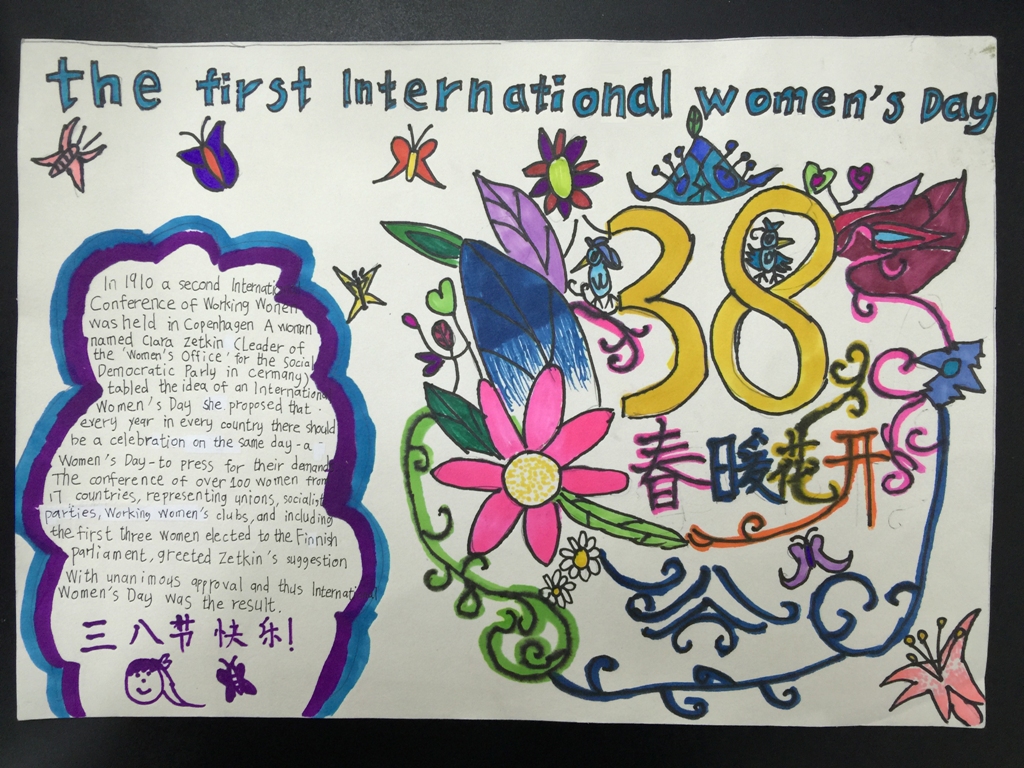 the first International women's Day
38
春暖花开
In 1910 a second Internatio
Conference of Working Women
was held in Copenhagen A woman
named Clara Zetkin (Leader of
the 'Women's Office' for the Social
Democratic Parly in Germany)
tabled the idea of an International
Women's Day She proposed that
every year in every country there should
be a celebration on the same day-a
Women's Day-to press for their demand
The conference of over 100 women from
17 countries, representing unions, socialist
parties, Working Women's clubs, and including
the first three women elected to the Finnish
parliament, greeted Zetkin's suggestion
With unanimous approval and thus Internati
Women's Day was the result.
三八节快乐!